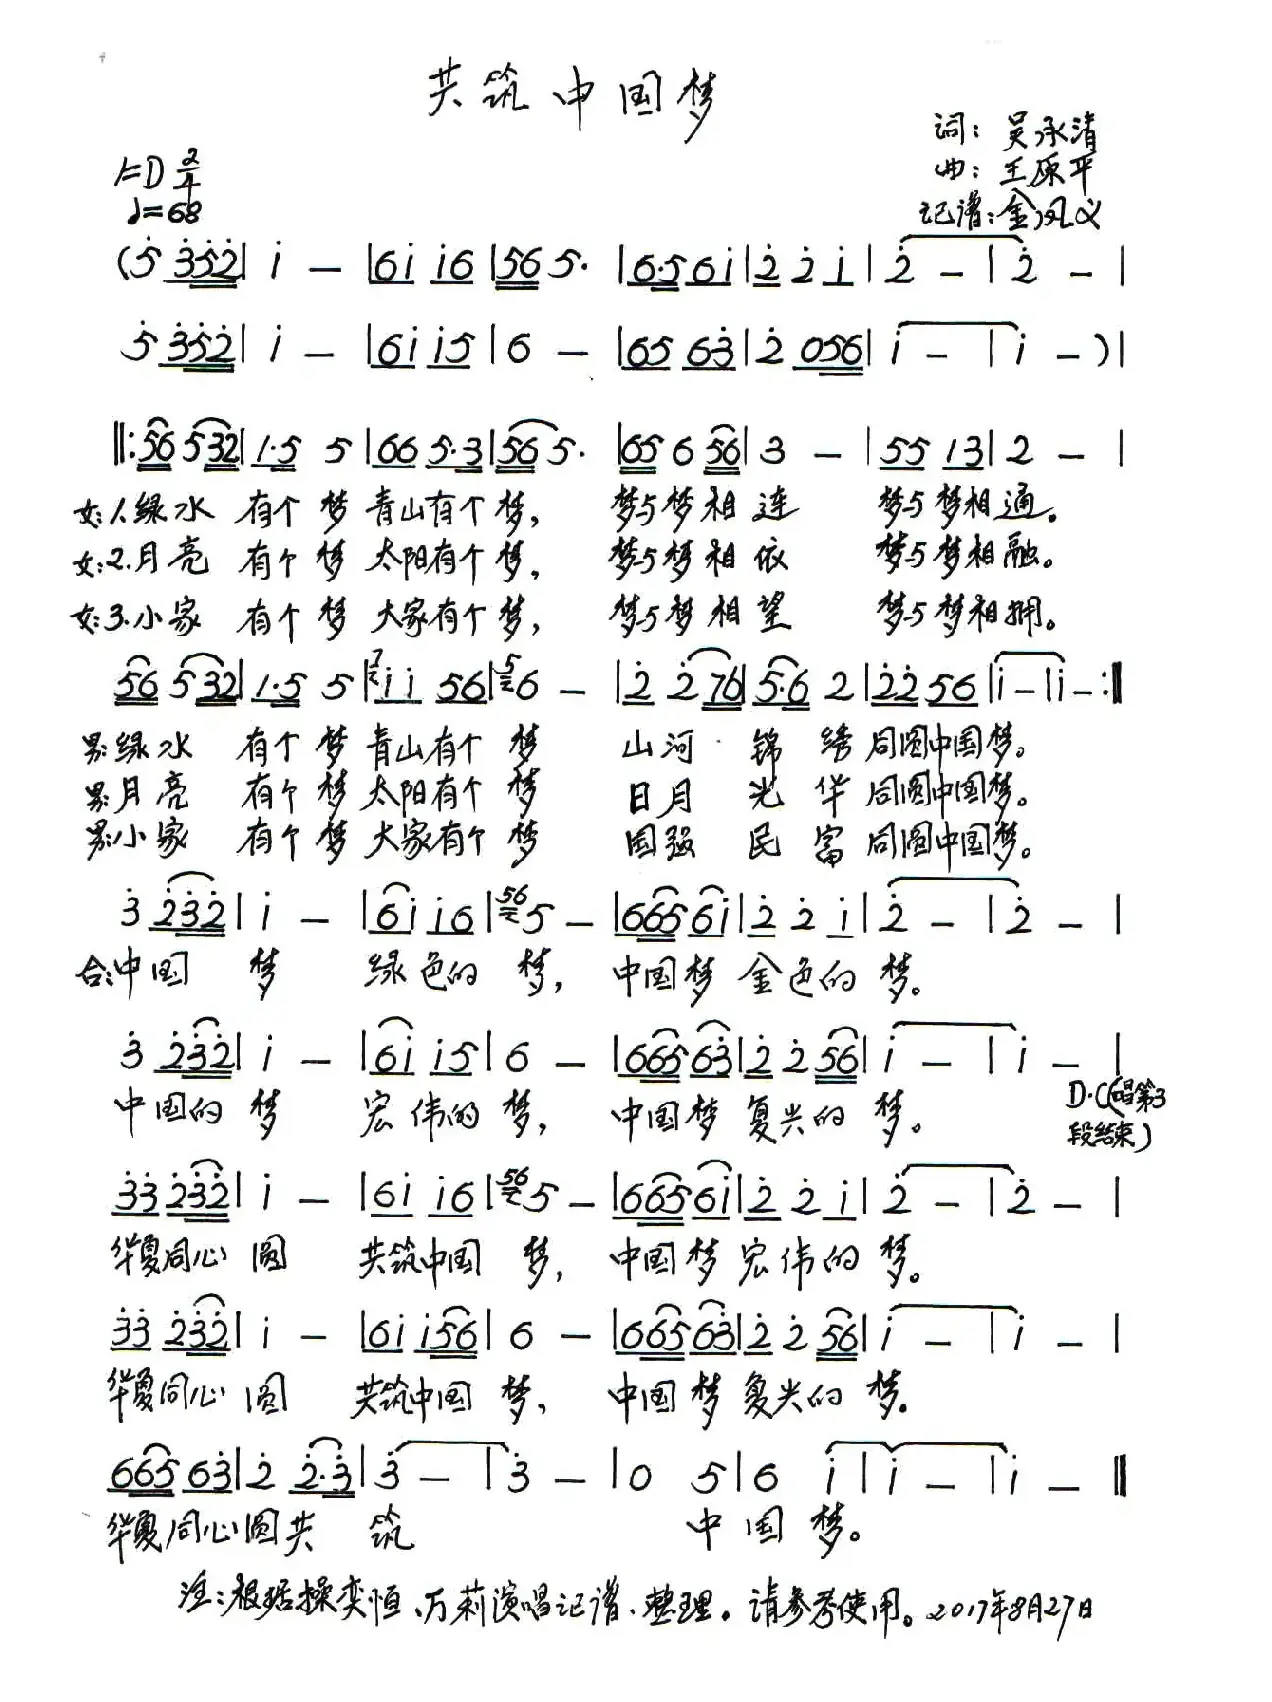 共筑中国梦
词：吴承清
曲：王原平
记谱：金凤义
1=D 2/4
♩=68
(5̇ 3̇5̇2̇ | i — | 6i i6 | 56 5· | 6·5 6i | 2̇ 2̇ i | 2̇ — | 2̇ — |
5̇ 3̇5̇2̇ | i — | 6i i5 | 6 — | 65 63̇ | 2̇ 056 | i — | i — ) |
‖: 56 532 | 1·5 5 | 66 5·3 | 56 5· | 65 6 56 | 3 — | 55 13 | 2 — |
女：1.绿水 有个梦 青山有个梦， 梦与梦相连 梦与梦相通。
女：2.月亮 有个梦 太阳有个梦， 梦与梦相依 梦与梦相融。
女：3.小家 有个梦 大家有个梦， 梦与梦相望 梦与梦相拥。
56 532 | 1·5 5 | 7 i i 56 | 5 6 — | 2̇ 2̇76 | 5·6 2 | 2̇2̇ 56 | i — | i — :‖
男：绿水 有个梦 青山有个梦 山河锦绣 同圆中国梦。
男：月亮 有个梦 太阳有个梦 日月光华 同圆中国梦。
男：小家 有个梦 大家有个梦 国强民富 同圆中国梦。
3̇ 2̇3̇2̇ | i — | 6i i6 | 56 5 — | 665 6i | 2̇ 2̇ i | 2̇ — | 2̇ — |
合：中国 梦 绿色的梦， 中国梦 金色的梦。
3̇ 2̇3̇2̇ | i — | 6i i5 | 6 — | 665 63̇ | 2̇ 2̇ 56 | i — | i — |
中国的梦 宏伟的梦， 中国梦 复兴的梦。
D·C(唱第3
段结束)
3̇3̇ 2̇3̇2̇ | i — | 6i i6 | 56 5 — | 665 6i | 2̇ 2̇ i | 2̇ — | 2̇ — |
华夏同心圆 共筑中国梦， 中国梦 宏伟的梦。
3̇3̇ 2̇3̇2̇ | i — | 6i i56 | 6 — | 665 63̇ | 2̇ 2̇ 56 | i — | i — |
华夏同心圆 共筑中国梦， 中国梦 复兴的梦。
665 63̇ | 2̇ 2̇·3̇ | 3̇ — | 3̇ — | 0 5 | 6 i | i — | i — ‖
华夏同心圆共筑 中国梦。
注：根据操奕恒、万莉演唱记谱、整理。请参考使用。2017年8月27日